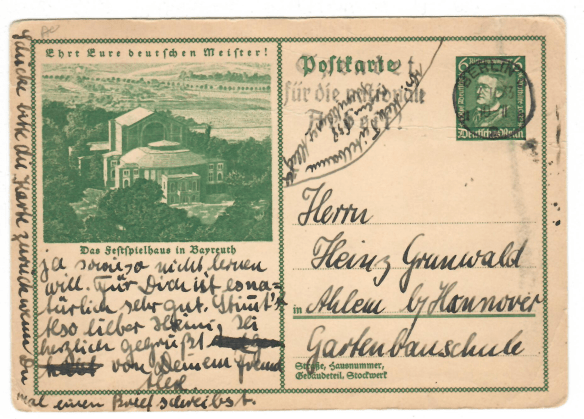 Ehrt Eure deutschen Meister!
Das Festspielhaus in Bayreuth
Postkarte
für die nationale
6
6
BERLIN
Deutsches Reich
Herrn
Heinz Grunwald
in Ahlem b/Hannover
Gartenbauschule
Straße, Hausnummer,
Gebäudeteil, Stockwerk
ja sowieso nicht lernen
will. Für Dich ist es na-
türlich sehr gut. Stimmt's
Also lieber Heini, sei
herzlich gegrüßt
von Deinem Freund
Schicke bitte die Karte zurück wenn Du
mal einen Brief schreibst.